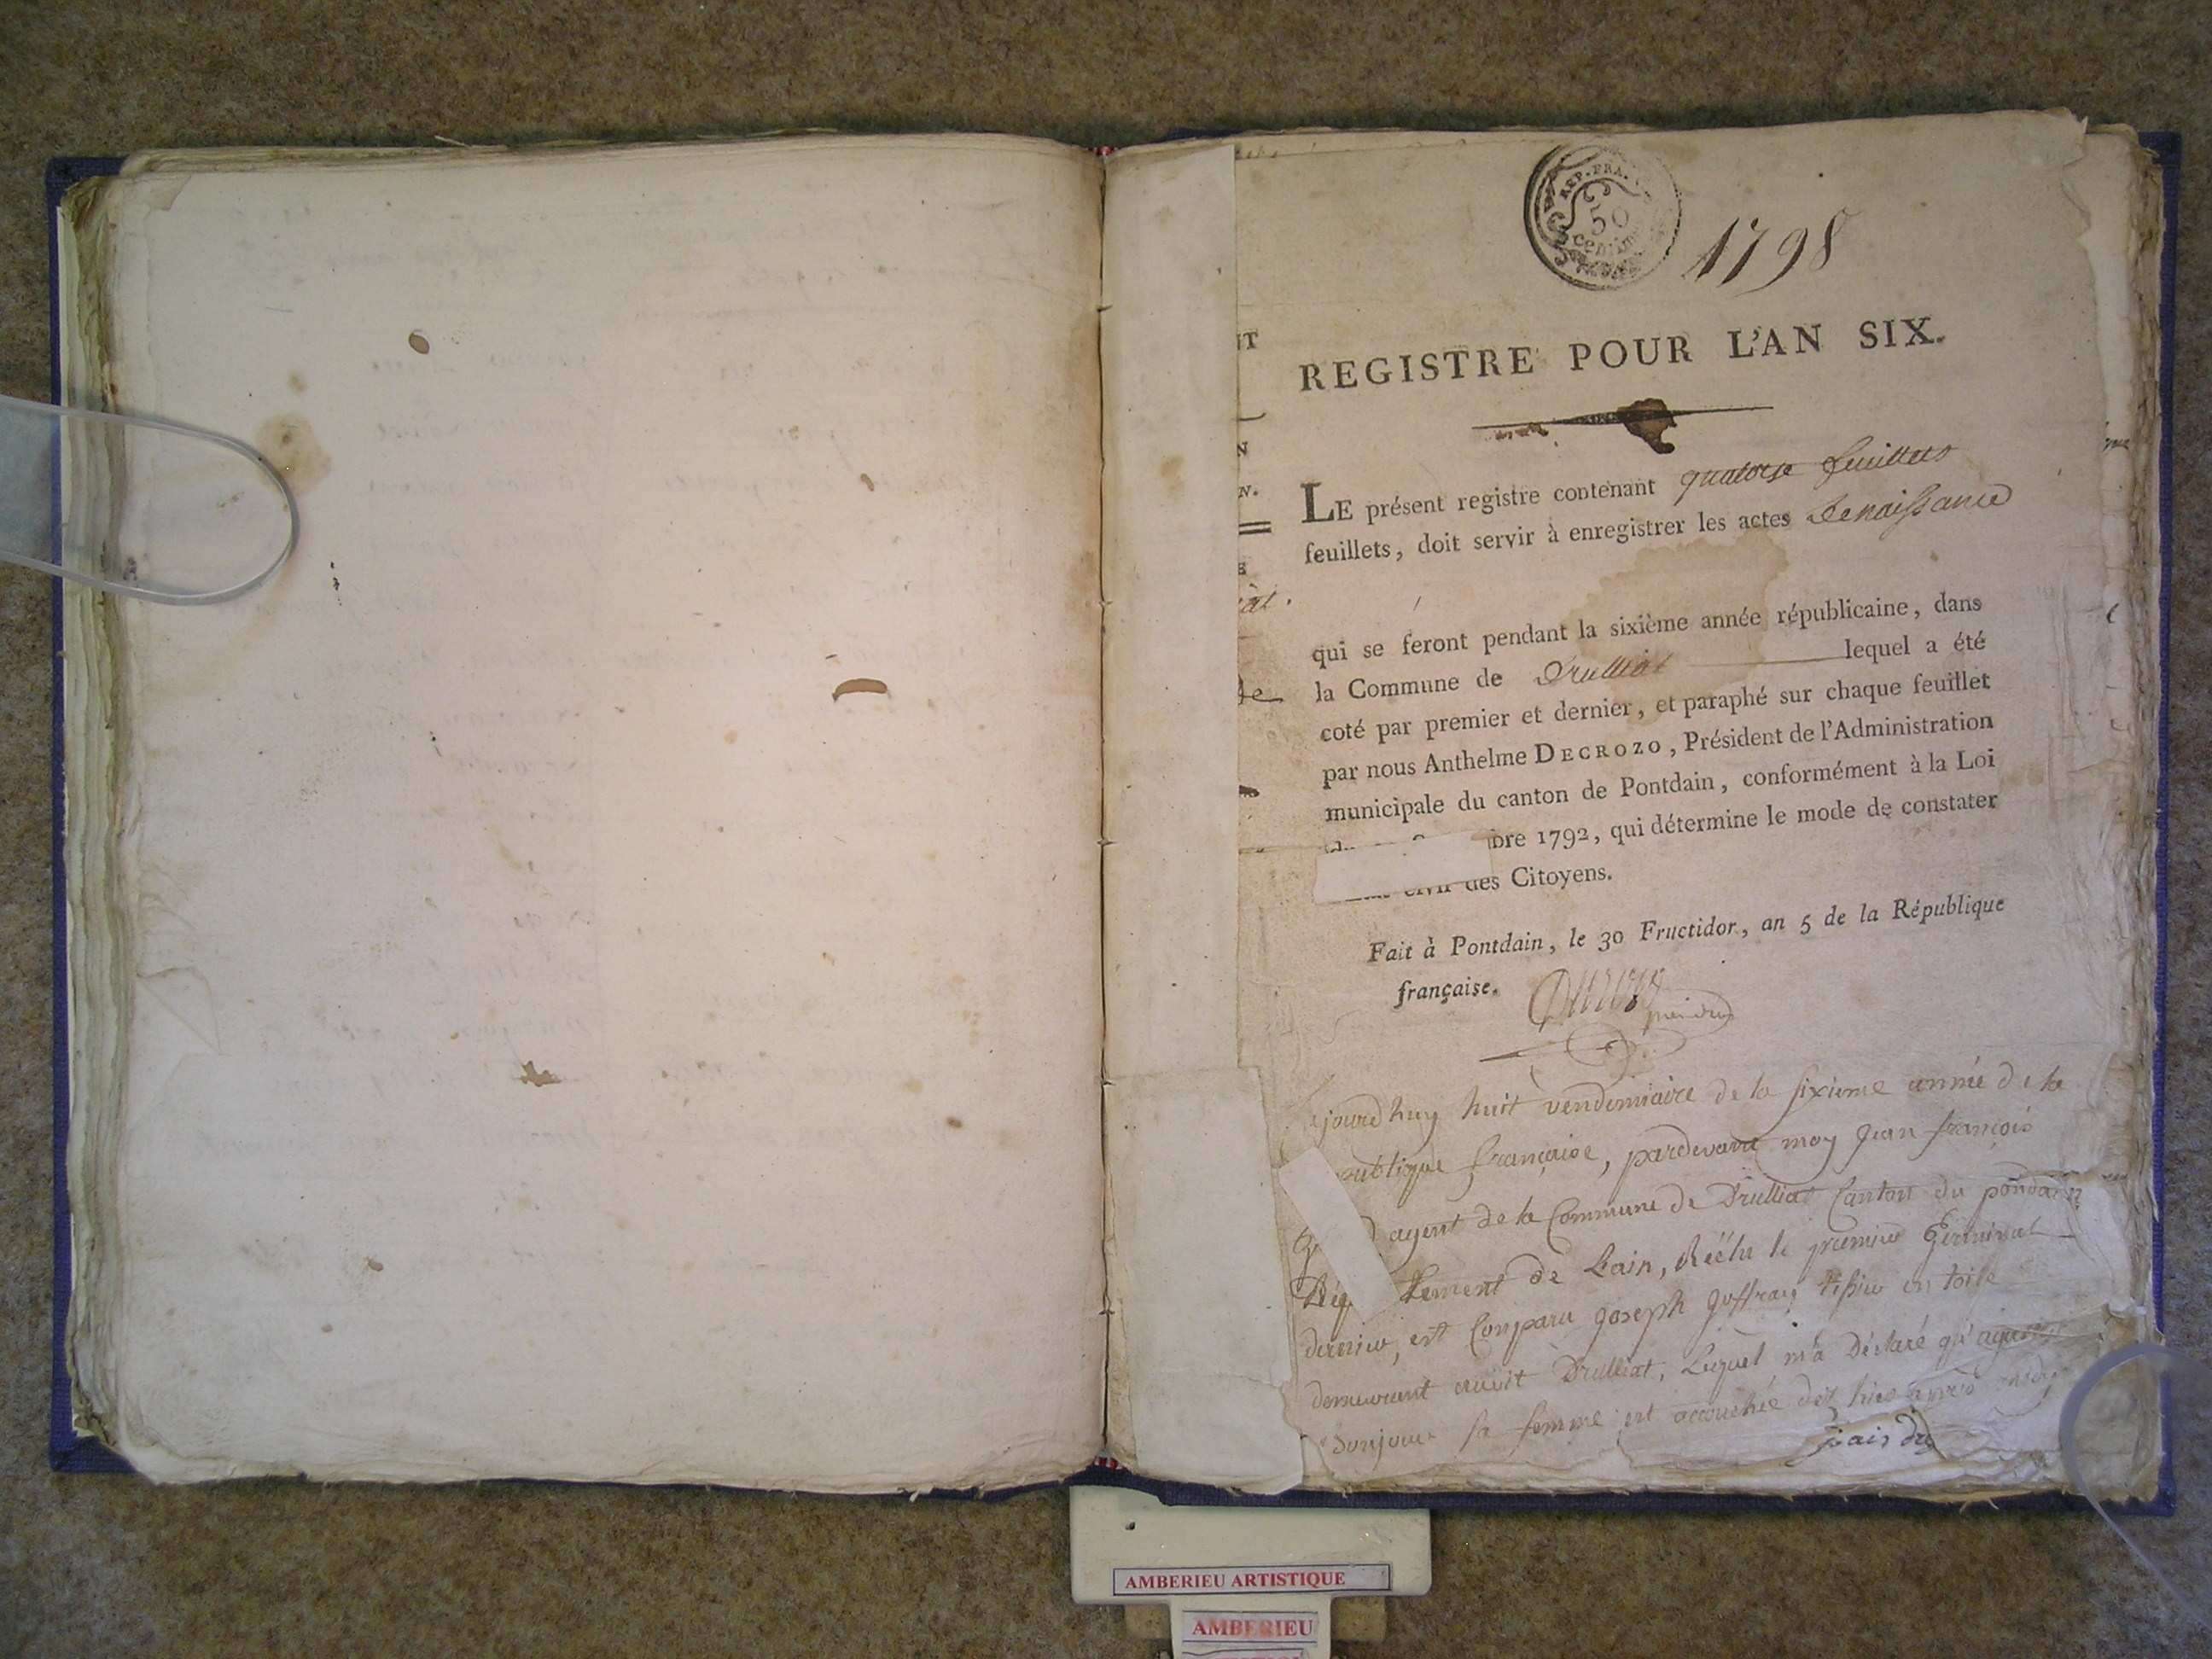 REP. FRA.
50
centim
1798
REGISTRE POUR L'AN SIX.
LE présent registre contenant quatorze feuillets
feuillets, doit servir à enregistrer les actes De naissance
qui se feront pendant la sixième année républicaine, dans
la Commune de Druilliat lequel a été
coté par premier et dernier, et paraphé sur chaque feuillet
par nous Anthelme DECROZO, Président de l'Administration
municipale du canton de Pontdain, conformément à la Loi
bre 1792, qui détermine le mode de constater
civil des Citoyens.
Fait à Pontdain, le 30 Fructidor, an 5 de la République
française.
jourdhuy huit vendemiaire de la sixieme année de la
publique française, pardevant moy Jean françois
agent de la Commune de Drulliat Canton du pondain
tement de Lain, Réélu le premier Germinal
dernier, est Comparu Joseph Goffray tissier en toile
demeurant audit Drulliat, Lequel m'a Déclaré qu'
sa femme est accouchée dès hier après
AMBERIEU ARTISTIQUE
AMBERIEU